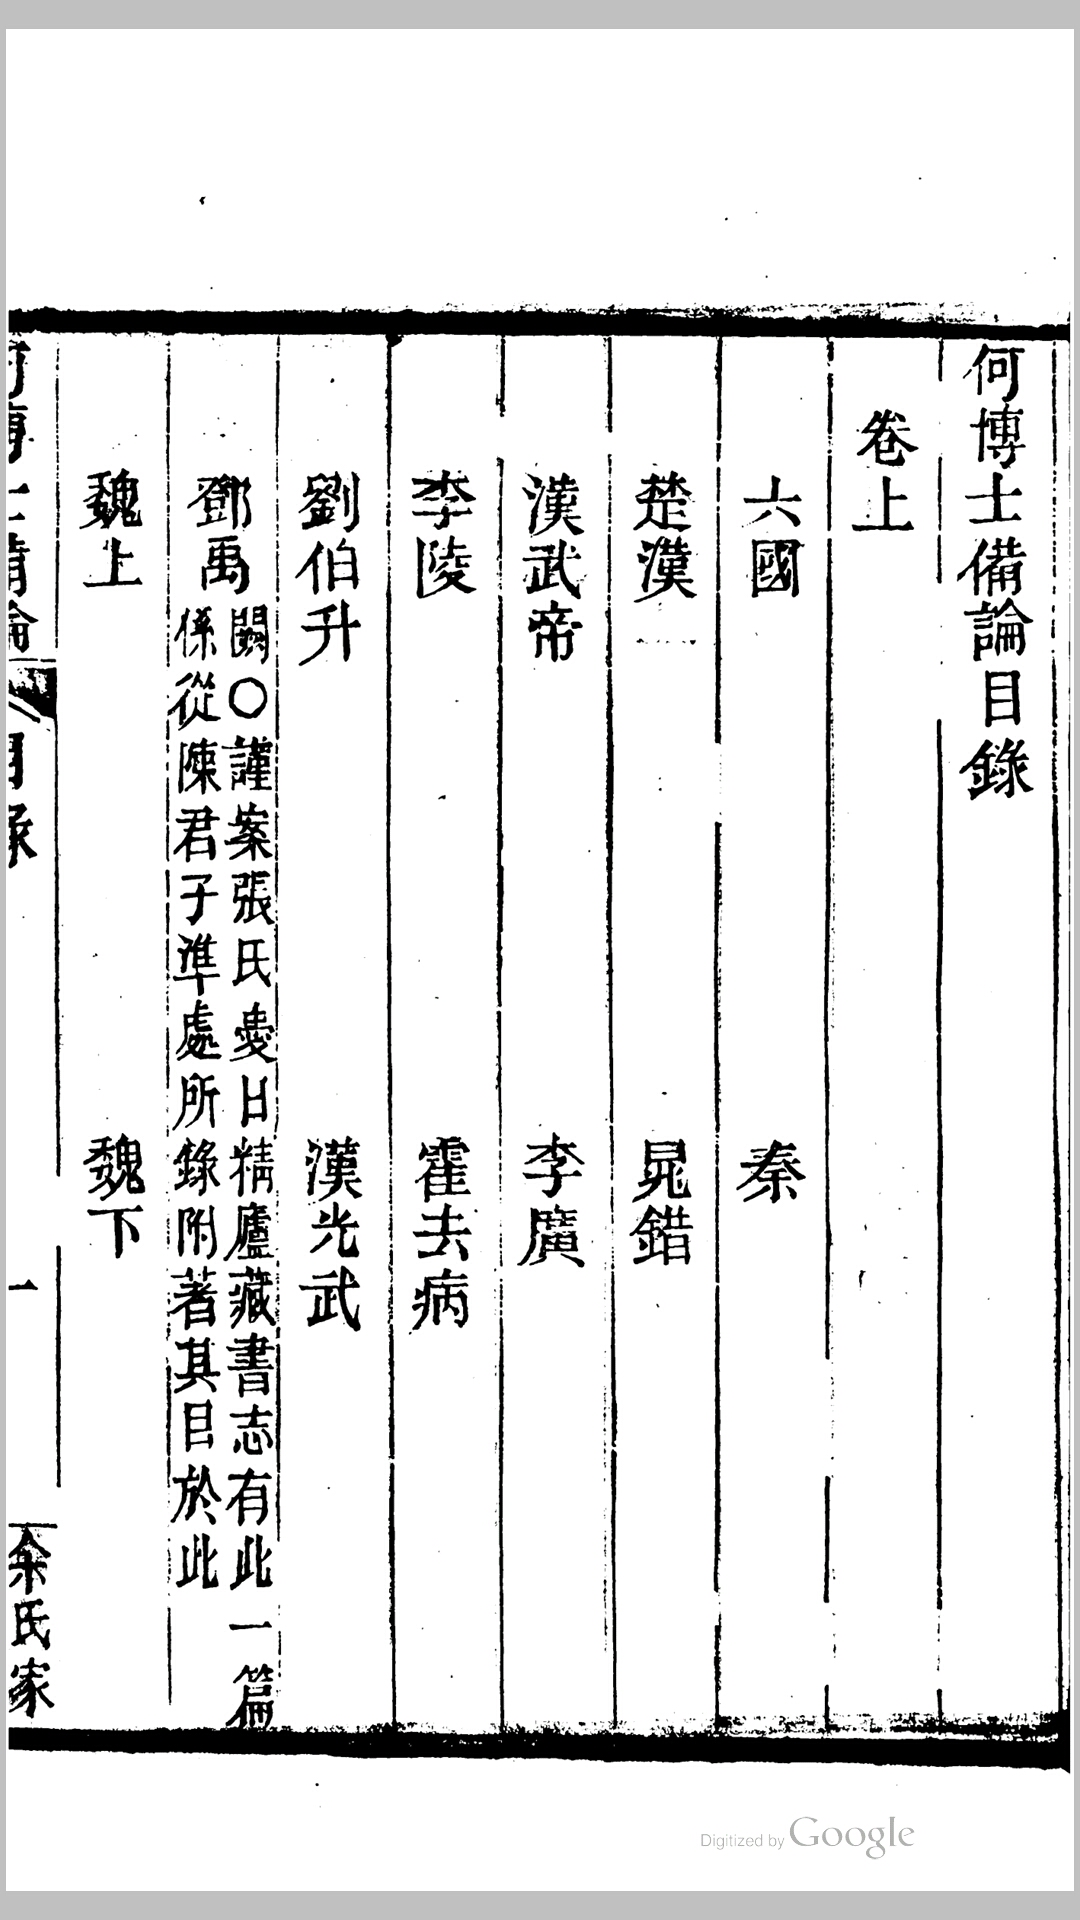 何博士備論目錄
卷上
六國　秦
楚漢　晁錯
漢武帝　李廣
李陵　霍去病
劉伯升　漢光武
鄧禹
闕〇謹案張氏愛日精廬藏書志有此一篇
係從陳君子準處所錄附著其目於此
魏上　魏下
何博士備論
目錄
一
余氏家
Digitized by Google